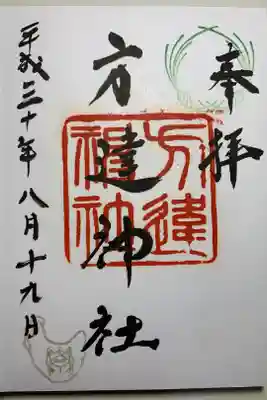 奉拝
方違神社
方違
平成三十年八月十九日